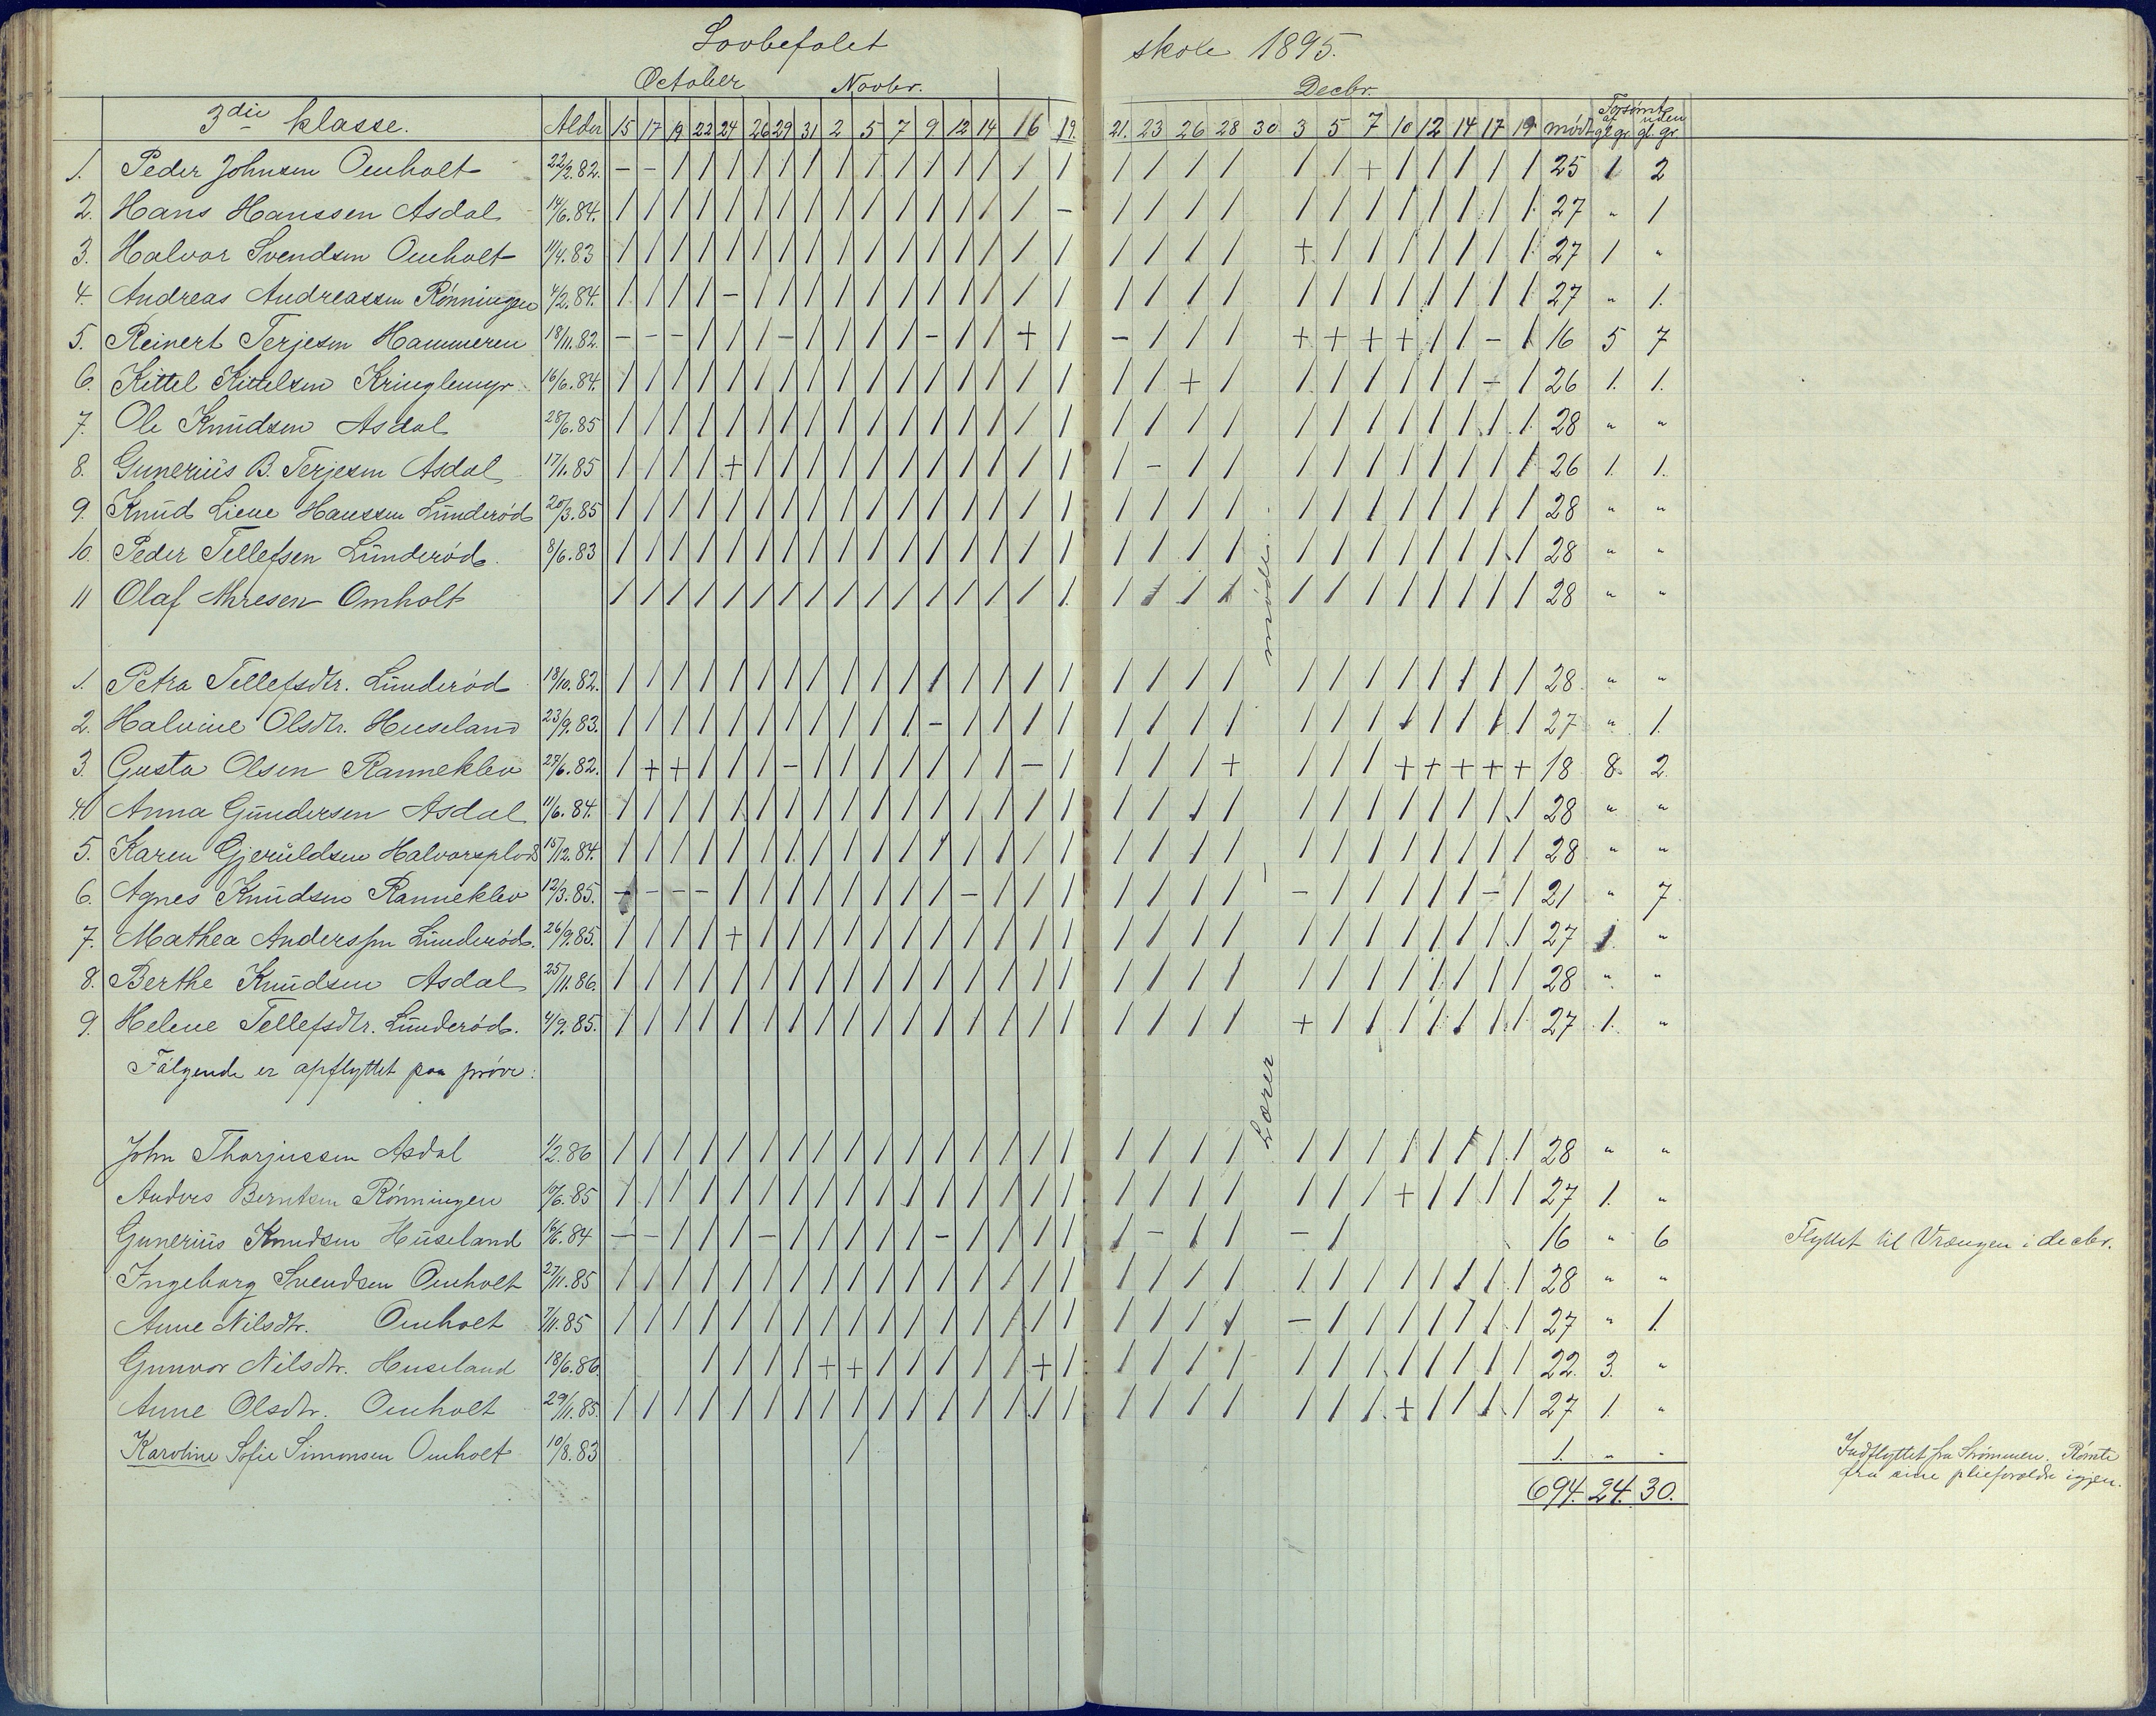 Lovbefalet skole 1895.
October Novbr. Decbr.
3die klasse. Alder 15 17 19 22 24 26 29 31 2 5 7 9 12 14 16 19. 21. 23 26 28 30 3 5 7 10 12 14 17 19 mødt Forsømt af gl. gr. uden gl. gr.
1. Peder Johnsen Omholt 22/2.82. - - / / / / / / / / / / / / / / / / / / / / + / / / / / 25 1 2
2. Hans Hanssen Asdal 14/6.84. / / / / / / / / / / / / / / / - / / / / / / / / / / / / 27 " 1
3. Halvor Svendsen Omholt 11/4.83 / / / / / / / / / / / / / / / / / / / / + / / / / / / / 27 1 "
4. Andreas Andreassen Rønningen 4/2.84. / / / / - / / / / / / / / / / / / / / / / / / / / / / / 27 " 1.
5. Reinert Terjesen Hammeren 18/11.82. - - - / / / - / / / / - / / + / - / / / + + + + / / - / 16 5 7
6. Kittel Kittelsen Kringlemyr 16/6.84. / / / / / / / / / / / / / / / / / / + / / / / / / / - / 26 1. 1.
7. Ole Knudsen Asdal 28/6.85 / / / / / / / / / / / / / / / / / / / / / / / / / / / / 28 " "
8. Gunerius B. Terjesen Asdal 17/1.85 / / / / + / / / / / / / / / / / / - / / / / / / / / / / 26 1. 1.
9. Knud Liene Hanssen Lunderød 20/3.85 / / / / / / / / / / / / / / / / / / / / / / / / / / / / 28 " "
10. Peder Tellefsen Lunderød. 8/6.83 / / / / / / / / / / / / / / / / / / / / / / / / / / / / 28 " "
11 Olaf Thresen Omholt / / / / / / / / / / / / / / / / / / / / / / / / / / / / 28 " "
1. Petra Tellefsdtr. Lunderød 18/10.82. / / / / / / / / / / / / / / / / / / / / / / / / / / / / 28 " "
2. Halvine Olsdtr. Huseland 23/9.83. / / / / / / / / / / / - / / / / / / / / / / / / / / / / 27 " 1.
3. Gusta Olsen Ranneklev 28/6.82. / + + / / / - / / / / / / / - / / / / + / / / + + + + + 18 8. 2.
4. Anna Gundersen Asdal 11/6.84. / / / / / / / / / / / / / / / / / / / / / / / / / / / / 28 " "
5. Karen Gjeruldsen Halvorsplads 15/12.84. / / / / / / / / / / / / / / / / / / / / / / / / / / / / 28 " "
6. Agnes Knudsen Ranneklev 12/3.85. - - - - / / / / / / / / - / / / / / / / - / / / / / - / 21 " 7
7. Mathea Anderssen Lunderød. 26/9.85. / / / / + / / / / / / / / / / / / / / / / / / / / / / / 27 1. "
8. Berthe Knudsen Asdal 25/11.86. / / / / / / / / / / / / / / / / / / / / / / / / / / / / 28 " "
9. Helene Tellefsdtr. Lunderød. 4/9.85. / / / / / / / / / / / / / / / / / / / / + / / / / / / / 27 1. "
Lærer mødte
Følgende er opflyttet paa prøve:
John Thorjussen Asdal 1/2.86 / / / / / / / / / / / / / / / / / / / / / / / / / / / / 28 " "
Anders Berntsen Rønningen 10/6.85 / / / / / / / / / / / / / / / / / / / / / / / + / / / / 27 1. "
Gunerius Knudsen Huseland 16/6.84 - - / / / - / / / / / - / / / / / - / / - / 16 " 6 Flyttet til Vrængen i decbr.
Ingeborg Svendsen Omholt 27/11.85 / / / / / / / / / / / / / / / / / / / / / / / / / / / / 28 " "
Anne Nilsdtr. Omholt 7/11.85 / / / / / / / / / / / / / / / / / / / / - / / / / / / / 27 " 1.
Gunvor Nilsdtr. Huseland 18/6.86 / / / / + + / / / / / / + / / / / / / / / / / / / / 22 3. "
Anne Olsdtr. Omholt 29/11.85. / / / / / / / / / / / / / / / / / / / / / / / + / / / / 27 1. "
Karoline Sofie Simonsen Omholt 10/8.83 / 1. " " Indflyttet fra Strømmen. Rømte
fra sine pliefoældre igjen.
694. 24. 30.